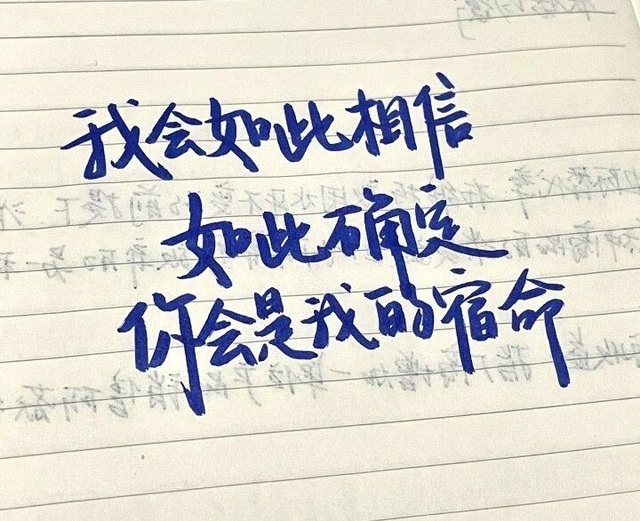 我会如此相信
如此确定
你会是我的宿命